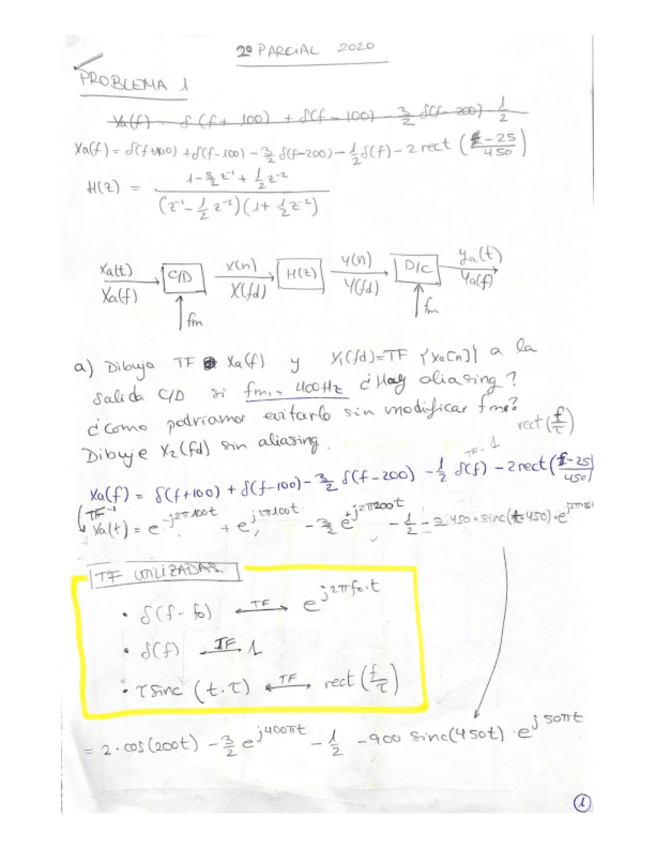 2º PARCIAL 2020
PROBLEMA 1
Xa(f) = δ(f+100) + δ(f-100) - 3/2 δ(f-200) - 1/2
Xa(f) = δ(f+100) + δ(f-100) - 3/2 δ(f-200) - 1/2 δ(f) - 2 rect (f-25/450)
H(z) = 1 - 5/2 z⁻¹ + 1/2 z⁻² / (z⁻¹ - 1/2 z⁻²)(1 + 1/2 z⁻²)
Xa(t) C/D x(n) H(z) y(n) D/C ya(t)
Xa(f) X(fd) Y(fd) Ya(f)
fm fm
a) Dibuja TF Xa(f) y X₁(fd)=TF {xa[n]} a la
salida C/D si fm₁ = 400Hz ¿Hay aliasing?
¿Como podríamos evitarlo sin modificar fm₁?
rect (f/τ)
Dibuje X₂(fd) sin aliasing.
TF=1
Xa(f) = δ(f+100) + δ(f-100) - 3/2 δ(f-200) - 1/2 δ(f) - 2 rect (f-25/450)
TF⁻¹
Xa(t) = e^-j2π100t + e^j2π100t - 3/2 e^j2π200t - 1/2 - 2·450·sinc(t·450)·e^j2π·25t
TF UTILIZADAS.
• δ(f-f₀) TF e^j2πf₀·t
• δ(f) TF 1
• τ sinc (t·τ) TF rect (f/τ)
= 2·cos(200t) - 3/2 e^j400πt - 1/2 - 900 sinc(450t) · e^j50πt
1